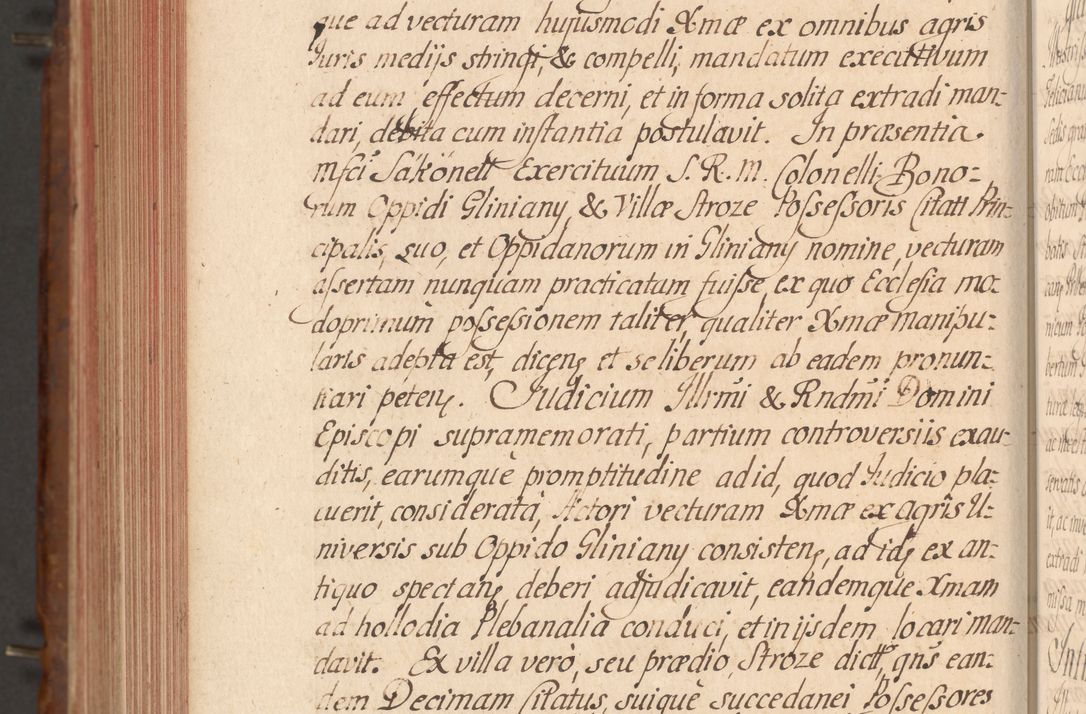 que ad vecturam hujusmodi Xmæ ex omnibus agris
Juris medijs stringi, & compelli, mandatum executivum
ad eum effectum decerni, et in forma solita extradi man:
dari, debita cum instantia postulavit. In præsentia
mfci Sakönett Exercituum S. R. M. Colonelli Bono:
rum Oppidi Gliniany, & Villæ Stroze Possessoris Citati Prin:
cipalis, suo, et Oppidanorum in Gliniany nomine, vecturam
assertam nunquam practicatam fuisse, ex quo Ecclesia mo:
doprimum possessionem taliter, qualiter Xmæ manipu:
laris adepta est, dicen, et se liberum ab eadem pronun:
tiari peten. Judicium Illrmi & Rndmi Domini
Episcopi supramemorati, partium controversiis exau:
ditis, earumque promptitudine ad id, quod Judicio pla:
cuerit, considerata, Actori vecturam Xmæ ex agris U:
niversis sub Oppido Gliniany consisten, ad id ex an:
tiquo spectan, deberi adjudicavit, eandemque Xmam
ad hollodia Plebanalia conduci, et in ijsdem locari man:
davit. Ex villa verò, seu prædio Stroze dictt, qns ean:
dem Decimam Citatus, suique succedanei Possessores